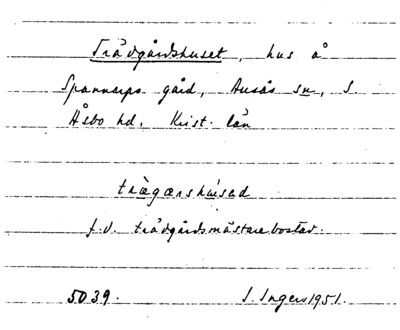 Trädgårdshuset, hus å
Spannarps gård, Ausås sn, S.
Åsbo hd, Krist. län
trägårshúsad
f.d. trädgårdsmästarebostad.
5039. I. Ingers 1951.